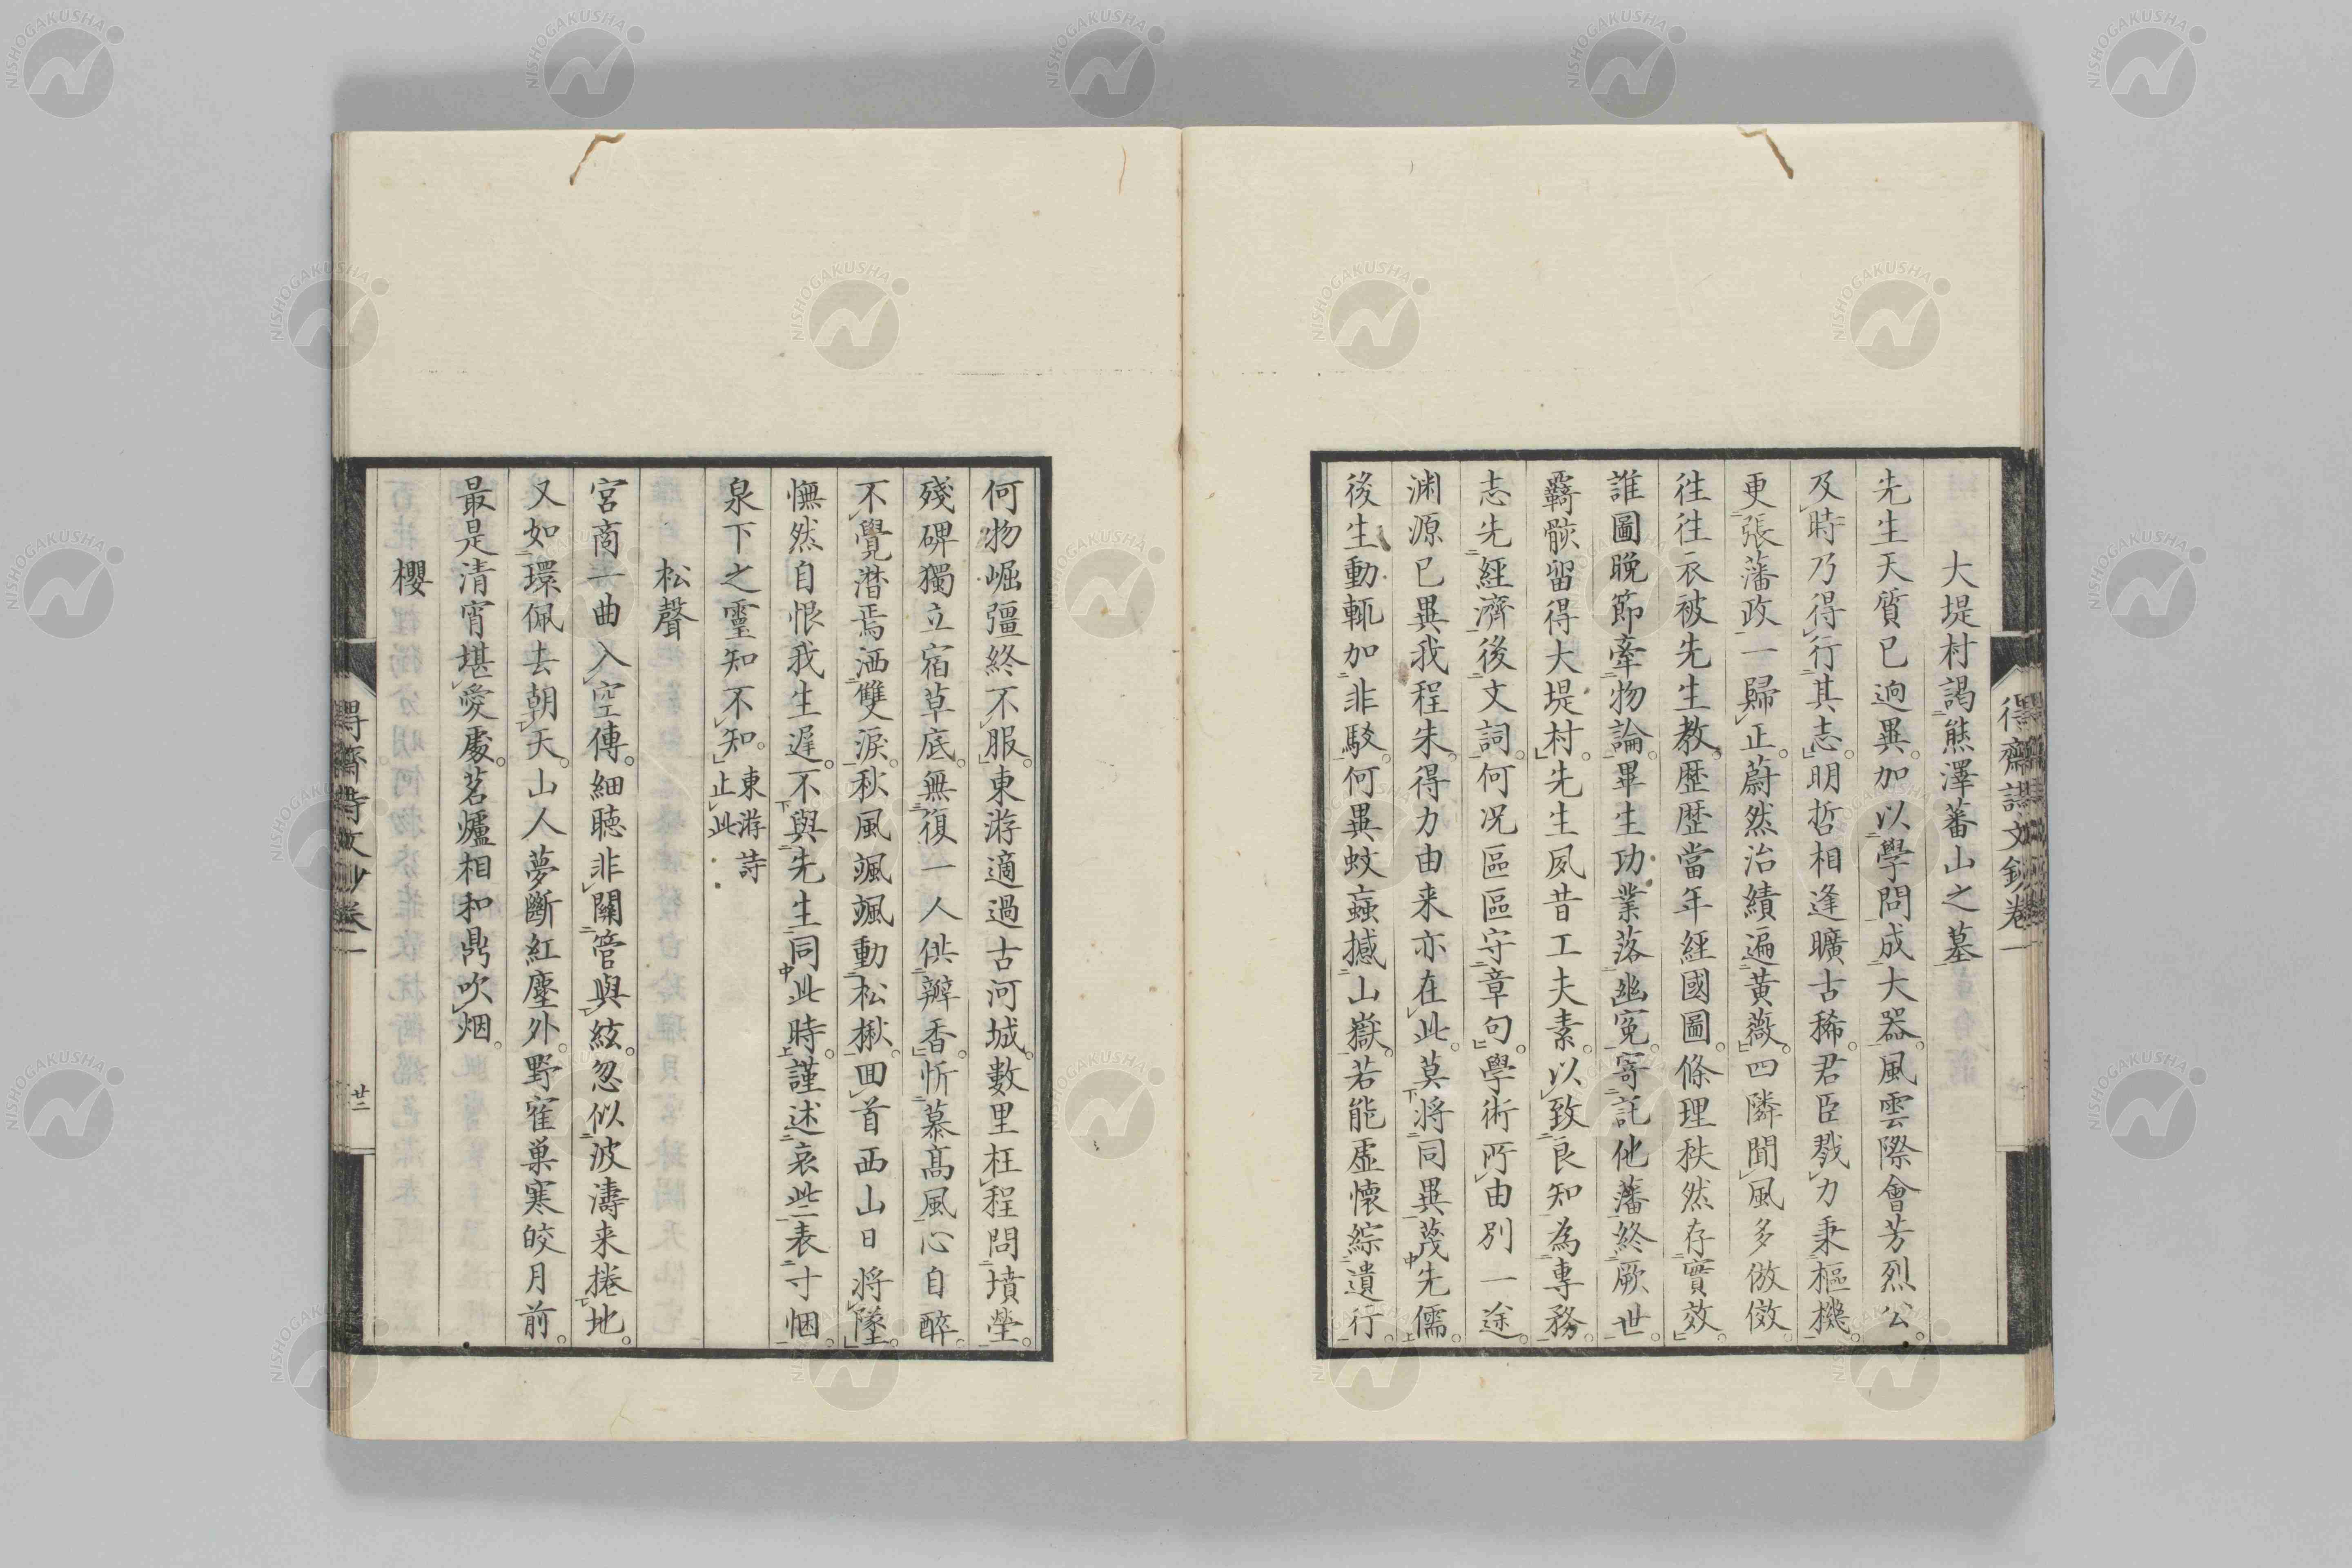 大堤村謁熊澤蕃山之墓
先生天質已逈異加以學問成大器風雲際會芳烈公
及時乃得行其志明哲相逢曠古稀君臣戮力秉樞機
更張藩政一歸正蔚然治績遍黃薇四隣聞風多倣傚
往往衣被先生教歷歷當年經國圖條理秩然存實效
誰圖晚節牽物論畢生功業落幽寃寄託他藩終厥世
羇骸留得大堤村先生夙昔工夫素以致良知為專務
志先經濟後文詞何況區區守章句學術所由別一途
渊源已異我程朱得力由来亦在此莫將同異蔑先儒
後生動輒加非駁何異蚊蝱撼山嶽若能虛懷綜遺行
何物崛彊終不服東游適過古河城數里枉程問墳塋
殘碑獨立宿草底無復一人供瓣香忻慕高風心自醉
不覺潜焉洒雙淚秋風颯颯動松楸囬首西山日將墜
憮然自恨我生遲不與先生同此時謹述哀些表寸悃
泉下之靈知不知東游詩止此
松聲
宮商一曲入空傳細聴非關管與絃忽似波濤来捲地
又如環佩去朝天山人夢斷紅塵外野寉巢寒皎月前
最是清宵堪愛處茗爐相和鼎吹烟
櫻
得齋詩文鈔卷一
廿二
NISHOGAKUSHA